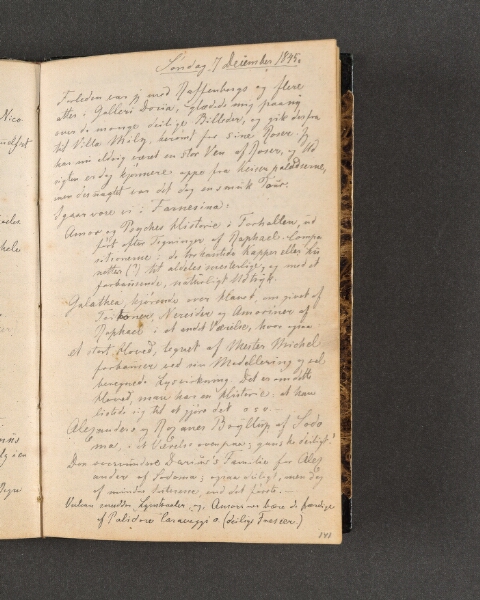 Nico
Søndag 7 December 1845.
Forleden var jeg med Raffenbergs og flere
atter i Galleri Doria, glædede mig paany
over de mange deilige Billeder, og gik derfra
til Villa Mils, berømt for sine Roser. Jeg
har nu aldrig været en stor Ven af Roser, og Ud
sigten er dog kjønnere oppe fra Keiserpaladserne,
men des uagtet var det dog en smuk Tour.
Igaar vare vi i Farnesina:
Amor og Psyches Historie i Forhallen, ud
ført efter Tegninger af Raphael. Compo
sitionerne i de trekantede Kapper eller
netter (?) til aldeles mesterlige, og med et
forbausende, naturligt Udtryk.
Galathea, kjørende over Havet, omgivet af
Tritoner, Nereider og Amoriner af
Raphael i et andet Værelse, hvor ogsaa
et stort Hoved, tegnet af Mester Michel
forbauser ved sin Modellering og vel
beregnede Lysvirkning. Det er om dette
Hoved man har en Historie, at han
listede sig til at gjøre det o.s.v. —
Alexanders og Roxanes Bryllup af Sodo
ma, i et Værelse ovenpaa; ganske deiligt!
Den overvundne Darius's Familie for Alex
ander af Sodoma; ogsaa deiligt, men dog
af mindre Interesse end det første. —
Vulcan smedder Lynstraaler, og Amoriner bære de færdige
af Polidoro Caravaggio. (deilige Frescoer.)
141